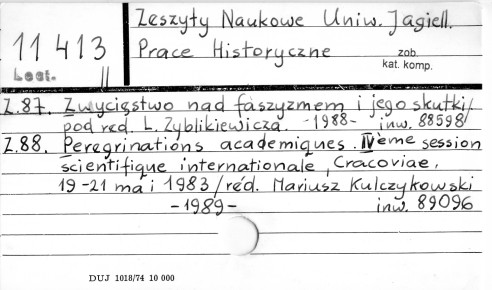 Zeszyty Naukowe Uniw. Jagiell.
11413
Prace Historyczne zob. kat. komp.
Lect. II
Z.87. Zwycięstwo nad faszyzmem i jego skutki/
pod red. L. Zyblikiewicza. -1988- inw. 88598/
Z.88. Peregrinations academiques. IVème session
scientifique internationale, Cracoviae,
19-21 mai 1983/réd. Mariusz Kulczykowski
-1989- inw. 89096
DUJ 1018/74 10 000